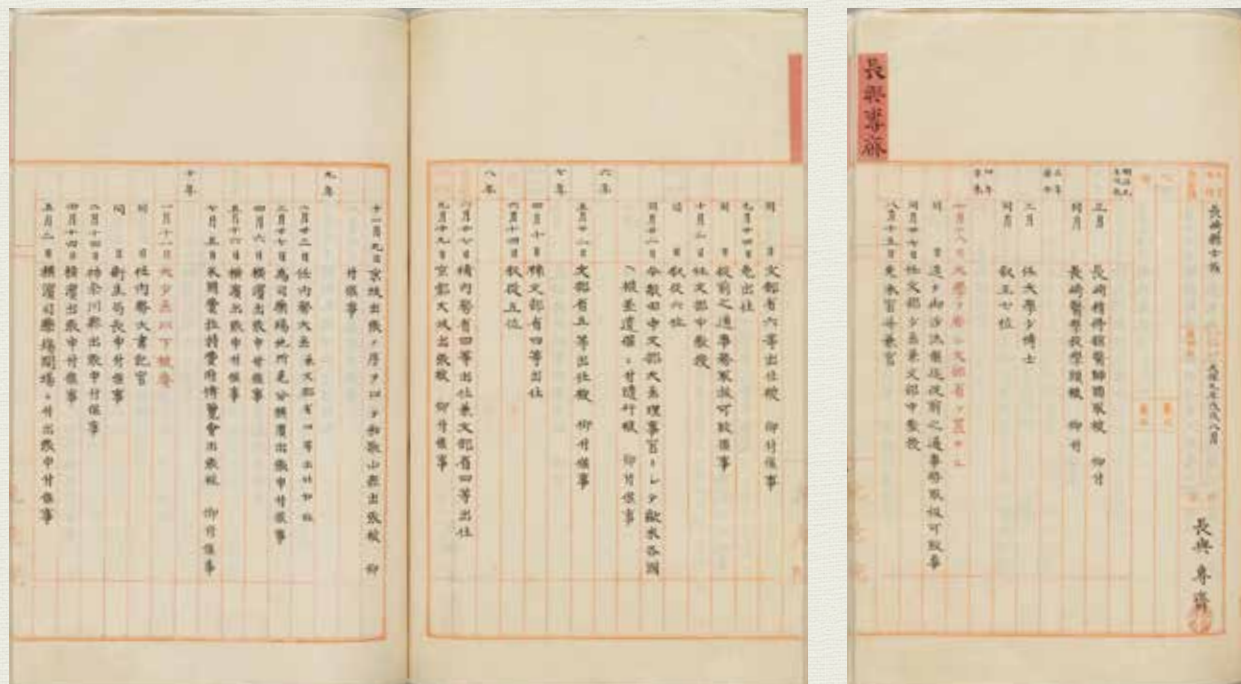 長與專齋
長與專齋
長崎縣士族
天保九年戊戌八月
三月 長崎精得館醫師頭取被 仰付
同月 長崎醫學校學頭被 仰付
二年
三月 任大學少博士
同月 叙正七位
四年
同 日 追テ御沙汰候迄從前之通事務取扱可致事
同月廿七日任文部少丞兼文部中教授
八月十五日免本官專兼官
同 日 文部省六等出仕被 仰付候事
九月十四日免出仕
同 日 從前之通事務取扱可致候事
十月二日任文部中教授
同 日 叙從六位
同月廿二日今般田中文部大丞理事官トシテ歐米各國
ヘ被差遣候ニ付隨行被 仰付候事
六年
七年
五月廿二日文部省五等出仕被 仰付候事
四月十日補文部省四等出仕
六月十四日叙從五位
八年
補内務省四等出仕兼文部省四等出仕
九月十九日京都大坂出張被 仰付候事
十一月九日京坂出張ノ序ヲ以テ和歌山縣出張被 仰
付候事
九年
任内務大丞兼文部省四等出仕如故
四月六日橫濱出張申付候事
五月十六日橫濱出張申付候事
七月五日米國費拉特費府博覽會出張被 仰付候事
十年
一月十一日大少丞以下被廢
同 日 任内務大書記官
同 日 衛生局長申付候事
二月十四日神奈川縣出張申付候事
四月十四日橫濱出張申付候事
五月二日橫濱司藥場開場ニ付出張申付候事